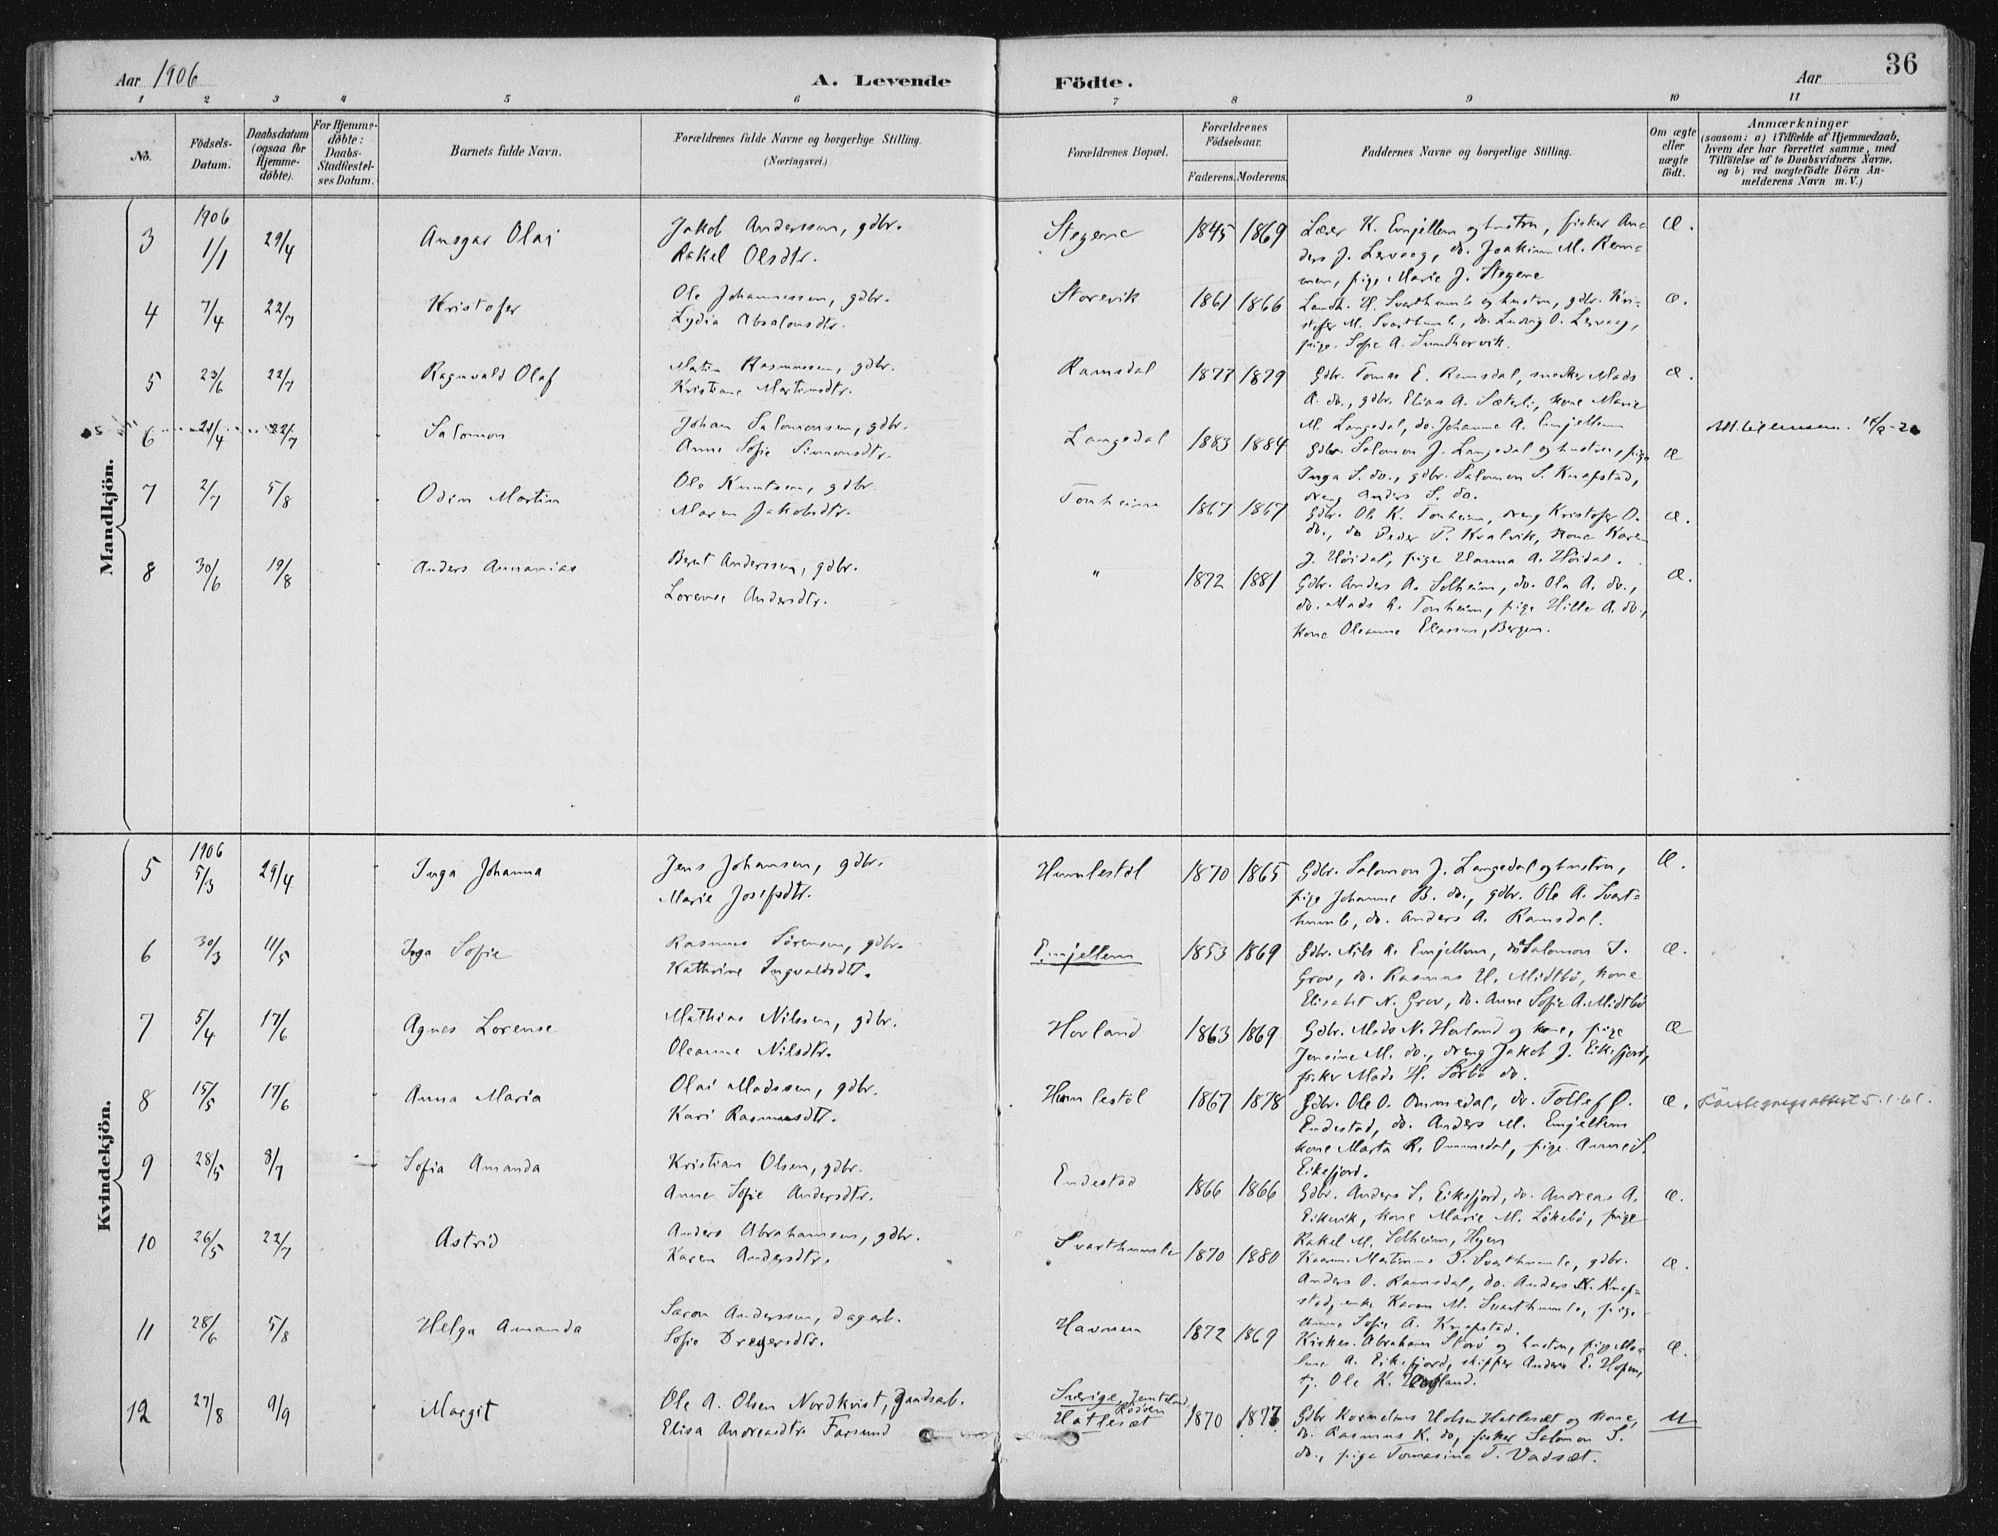 Aar 1906
A. Levende
Födte.
Aar
36
1 2 3 4 5 6 7 8 9 10 11
No.
Födsels-Datum.
Daabsdatum (ogsaa for Hjemme-döbte).
For Hjemme-döbte: Daabs-Stadfæstel-ses Datum.
Barnets fulde Navn.
Forældrenes fulde Navne og borgerlige Stilling. (Næringsvei.)
Forældrenes Bopæl.
Forældrenes Födselsaar.
Faderens. Moderens.
Faddernes Navne og borgerlige Stilling.
Om ægte eller uægte födt.
Anmærkninger
(saasom: a) i Tilfælde af Hjemmedaab, hvem der har forrettet samme, med Tilföielse af to Daabsvidners Navne. og b) ved uægtefödte Börn An-melderens Navn m. V.)
Mandkjön.
3 1906 1/1 29/4 Ansgar Olai
Jakob Anderssen, gdbr.
Rakel Olsdtr.
Stegene 1845 1869
Lærer K. Emjellem og hustru, fisker An-
ders J. Lervaag, do. Joakim M. Rem-
men, pige Marie J. Stegene
Æ.
4 7/4 22/7 Kristofer
Ole Johannessen, gdbr.
Lydia Absalonsdtr.
Storevik 1861 1866
Landh. H. Svarthumle og hustru, gdbr. Kri-
stofer M. Svarthumle, do. Ludvig O. Lervaag,
pige Sofie A. Sundhervik.
æ.
5 23/6 22/7 Ragnvald Olaf
Martin Rasmussen, gdbr.
Kristiane Martinsdtr.
Ramsdal 1877 1879
Gdbr. Tomas E. Ramsdal, snecker Mads
A. do., gdbr. Elias A. Sæterli, kone Marie
M. Langedal, do. Johanne A. Emjellem
æ.
6 21/4 22/7 Salomon
Johan Salomonsen, gdbr.
Anne Sofie Simonsdtr.
Langedal 1883 1884
Gdbr. Salomon J. Langedal og hustru, pige
Inga S. do., gdbr. Salomon S. Knapstad,
dreng Anders S. do.
æ
7 2/7 5/8 Odin Martin
Ole Knutsen, gdbr.
Maren Jakobsdtr.
Tonheim 1867 1867
Gdbr. Ole K. Tonheim, dreng Kristofer O.
do., do Peder P. Kvalvik, kone Karen
J. Höidal, pige Hanna A. Höidal.
æ.
8 30/6 19/8 Anders Annanias
Bernt Anderssen, gdbr.
Lorense Andersdtr.
" 1872 1881
Gdbr. Anders A. Solheim, do. Ola A. do.,
do. Mads R. Tonheim, pige Hille A. do.,
kone Oleanne Eliassen, Bergen.
æ.
Kvindekjön.
5 1906 5/3 29/4 Inga Johanna
Jens Johansen, gdbr.
Marie Josefsdtr.
Humlestöl 1870 1865
Gdbr. Salomon J. Langedal og hustru,
pige Johanne B. do., gdbr. Ole A. Svart-
humle, do. Anders A. Ramsdal.
Æ.
6 30/3 11/5 Inga Sofie
Rasmus Sörensen, gdbr.
Kathrine Ingvaldsdtr.
Emjellem 1853 1869
Gdbr. Nils R. Emjellem, do Salomon S.
Grov, do. Rasmus H. Midtbö, kone
Elisabet N. Grov, do. Anne Sofie A. Midtbö
æ.
7 5/4 17/6 Agnes Lorense
Mathias Nilssen, gdbr.
Oleanne Nilsdtr.
Hovland 1863 1869
Gdbr. Mads N. Hovland og kone, pige
Jensine M. do., dreng Jakob J. Eikefjord,
fisker Mads H. Sörbö do.
æ
8 15/5 17/6 Anna Maria
Olai Madssen, gdbr.
Kari Rasmusdtr.
Humlestöl 1867 1878
Gdbr. Ole O. Ommedal, do. Tollef O.
Endestad, do. Anders M. Emjellem
kone Marta R. Ommedal, pige Anne S.
Eikefjord.
æ.
9 28/5 8/7 Sofia Amanda
Kristian Olsen, gdbr.
Anne Sofie Andersdtr.
Endestad 1866 1866
Gdbr. Anders S. Eikefjord, do. Andreas A.
Eikevik, kone Marie M. Lökebö, pige
Rakel M. Solheim, Hyen
æ.
10 26/5 22/7 Astrid
Anders Abrahamsen, gdbr.
Karen Andersdtr.
Svarthumle 1870 1880
Kaarm. Martinus P. Svarthumle, gdbr.
Anders O. Ramsdal, do. Anders N. Knap-
stad, enke Karen M. Svarthumle, pige
Anne Sofie A. Knapstad.
æ.
11 28/6 5/8 Helga Amanda
Saron Anderssen, dagarb.
Sofie Dreyersdtr.
Havnen 1872 1869
Kirkes. Abraham Storö og hustru, pige Ma-
A. Eikefjord, skipper Anders E. Hopen,
tj. Ole K.
æ.
12 27/8 9/9 Margit
Ole A. Olsen Nordkvist,
Elisa Andreasdtr. Farsund
Sverige, Jemtland
Rödöen
Hatlesæt 1870 1877
Gdbr Kornelius Hatlesæt og kone,
do. Rasmus K. do, fisker Salomon S.
do., pige Tomasine T. Vadsæt.
U